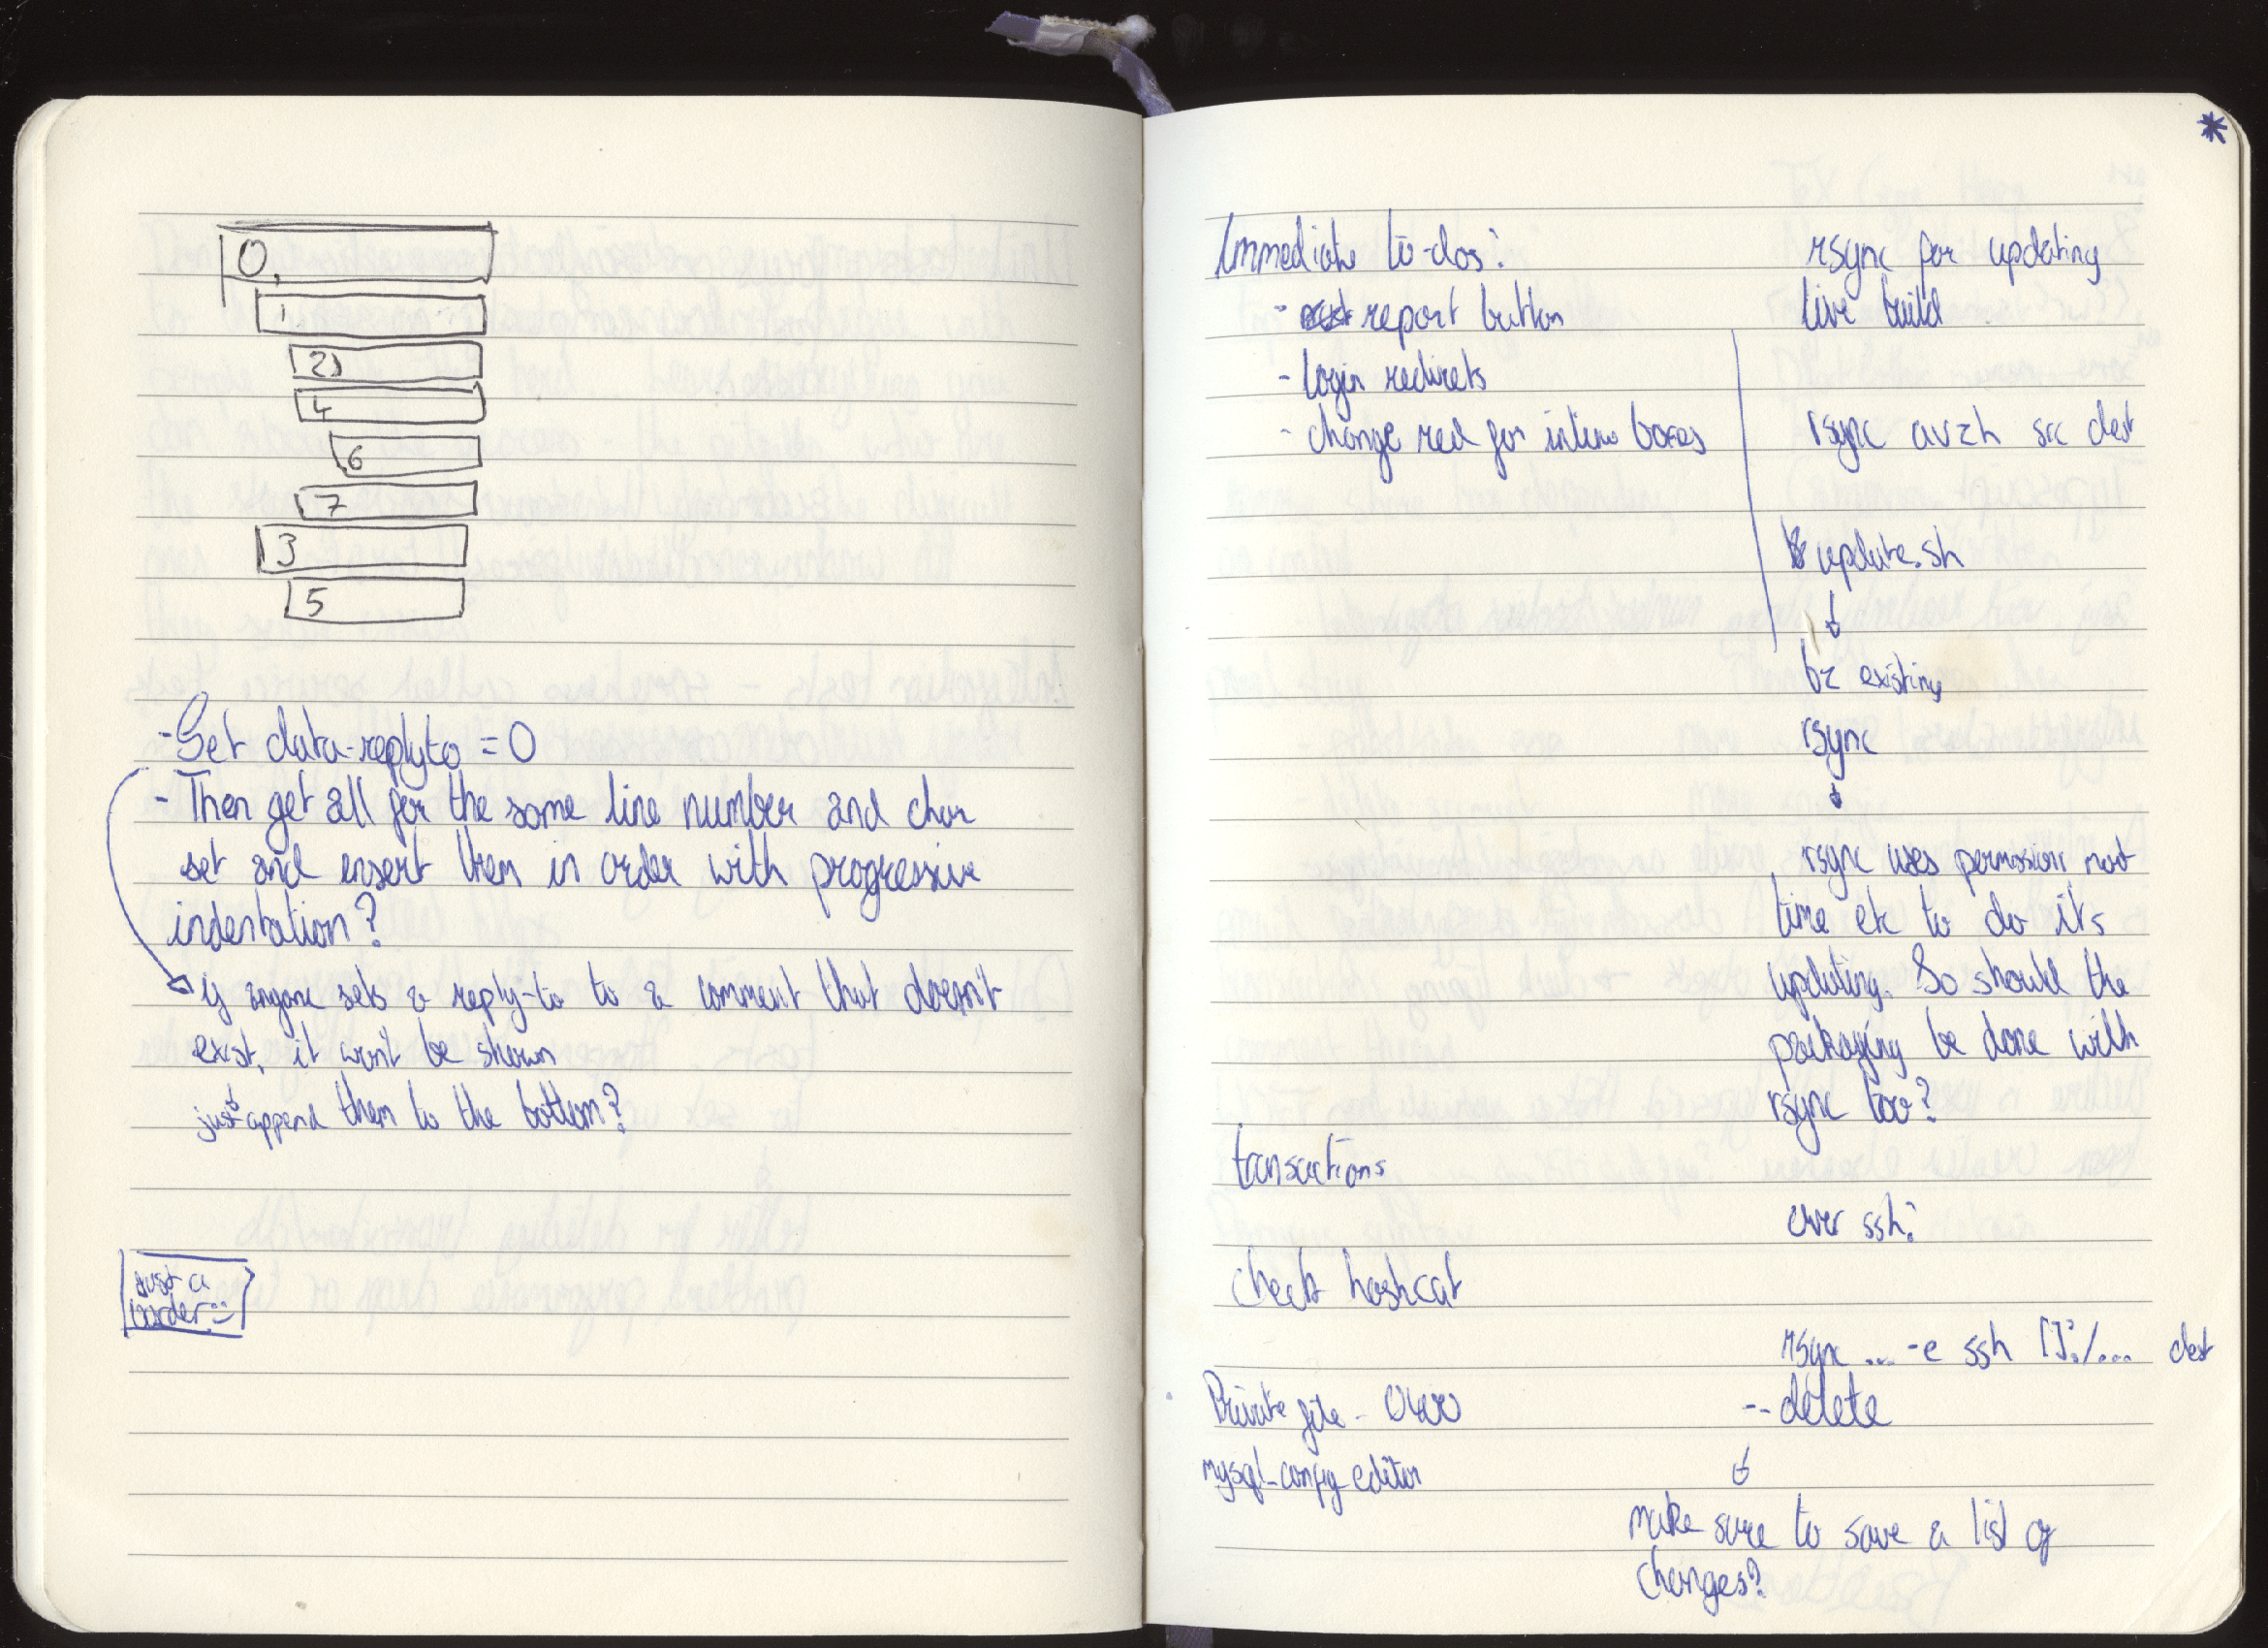 0,
1.
2)
4
6
7
3
5
- Set data-replyto = 0
- Then get all for the same line number and char
set and insert them in order with progressive
indentation?
if anyone sets a reply-to to a comment that doesn't
exist, it won't be shown
just append them to the bottom?
Just a
border :-)
*
Immediate to-dos:
- report button
- login redirects
- change red for inline boxes
transactions
check hashcat
Private file - 0400
mysql_config_editor
rsync for updating
live build
rsync avzh src dest
update.sh
bz existing
rsync
rsync uses permission not
time etc to do its
updating. So should the
packaging be done with
rsync too?
over ssh:
rsync ... -e ssh []:/... dest
--delete
make sure to save a list of
changes?